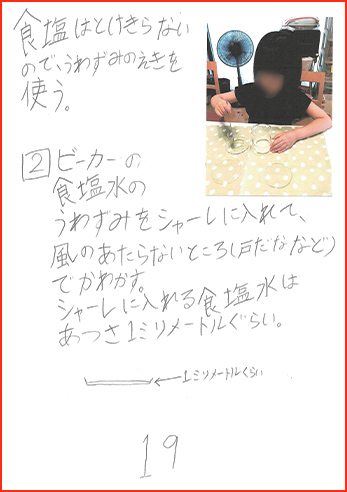 食塩はとけきらない
ので、うわずみのえきを
使う。
2 ビーカーの
食塩水の
うわずみをシャーレに入れて、
風のあたらないところ(戸だななど)
でかわかす。
シャーレに入れる食塩水は
あつさ1ミリメートルぐらい。
←1ミリメートルくらい
19